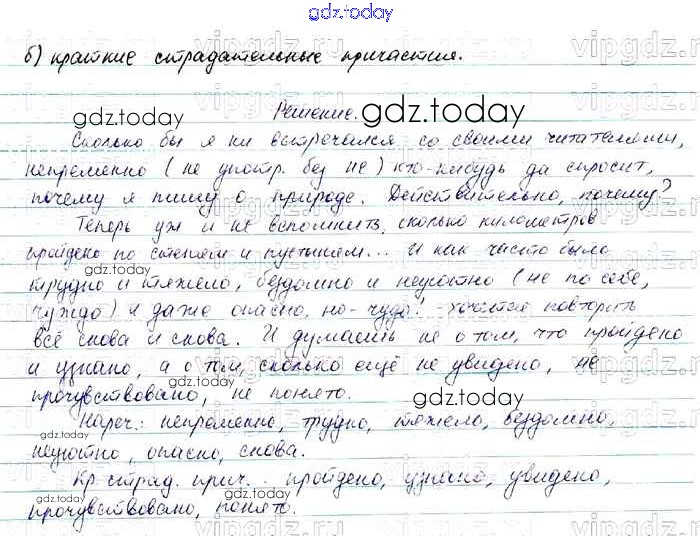 gdz.today
б) краткие страдательные причастия.
Решение.
Сколько бы я ни встречался со своими читателями,
непременно (не употр. без не) кто-нибудь да спросит,
почему я пишу о природе. Действительно, почему?
Теперь уж и не вспомнить, сколько километров
пройдено по степям и пустыням... И как часто было
трудно и тяжело, бездомно и неуютно (не по себе,
чуждо) и даже опасно, но - чудо! - хочется повторить
всё снова и снова. И думаешь не о том, что пройдено
и узнано, а о том, сколько ещё не увидено, не
прочувствовано, не понято.
Нареч.: непременно, трудно, тяжело, бездомно,
неуютно, опасно, снова.
Кр. страд. прич.: пройдено, узнано, увидено,
прочувствовано, понято.